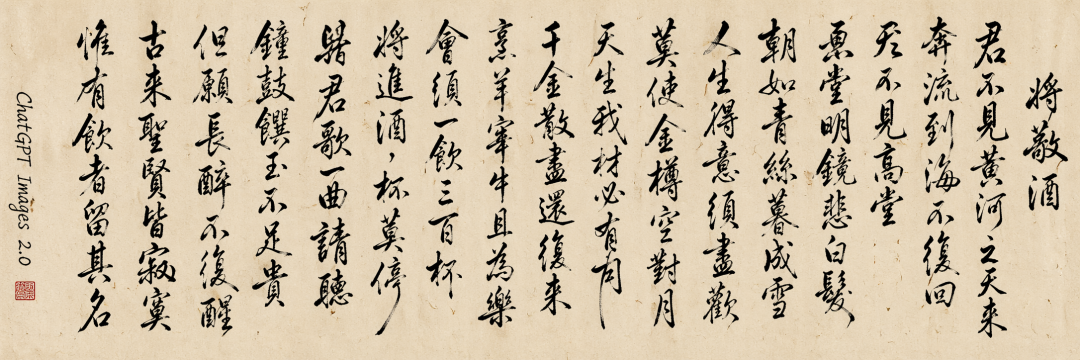 将敬酒
君不見黃河之天来
奔流到海不復回
君不見高堂
悪堂明鏡悲白髮
朝如青絲暮成雪
人生得意須盡歡
莫使金樽空對月
天生我材必有用
千金散盡還復来
烹羊宰牛且為樂
會須一飲三百杯
將進酒，杯莫停
君歌一曲請聽
鐘鼓饌玉不足貴
但願長醉不復醒
古来聖賢皆寂寞
惟有飲者留其名
ChatGPT Images 2.0